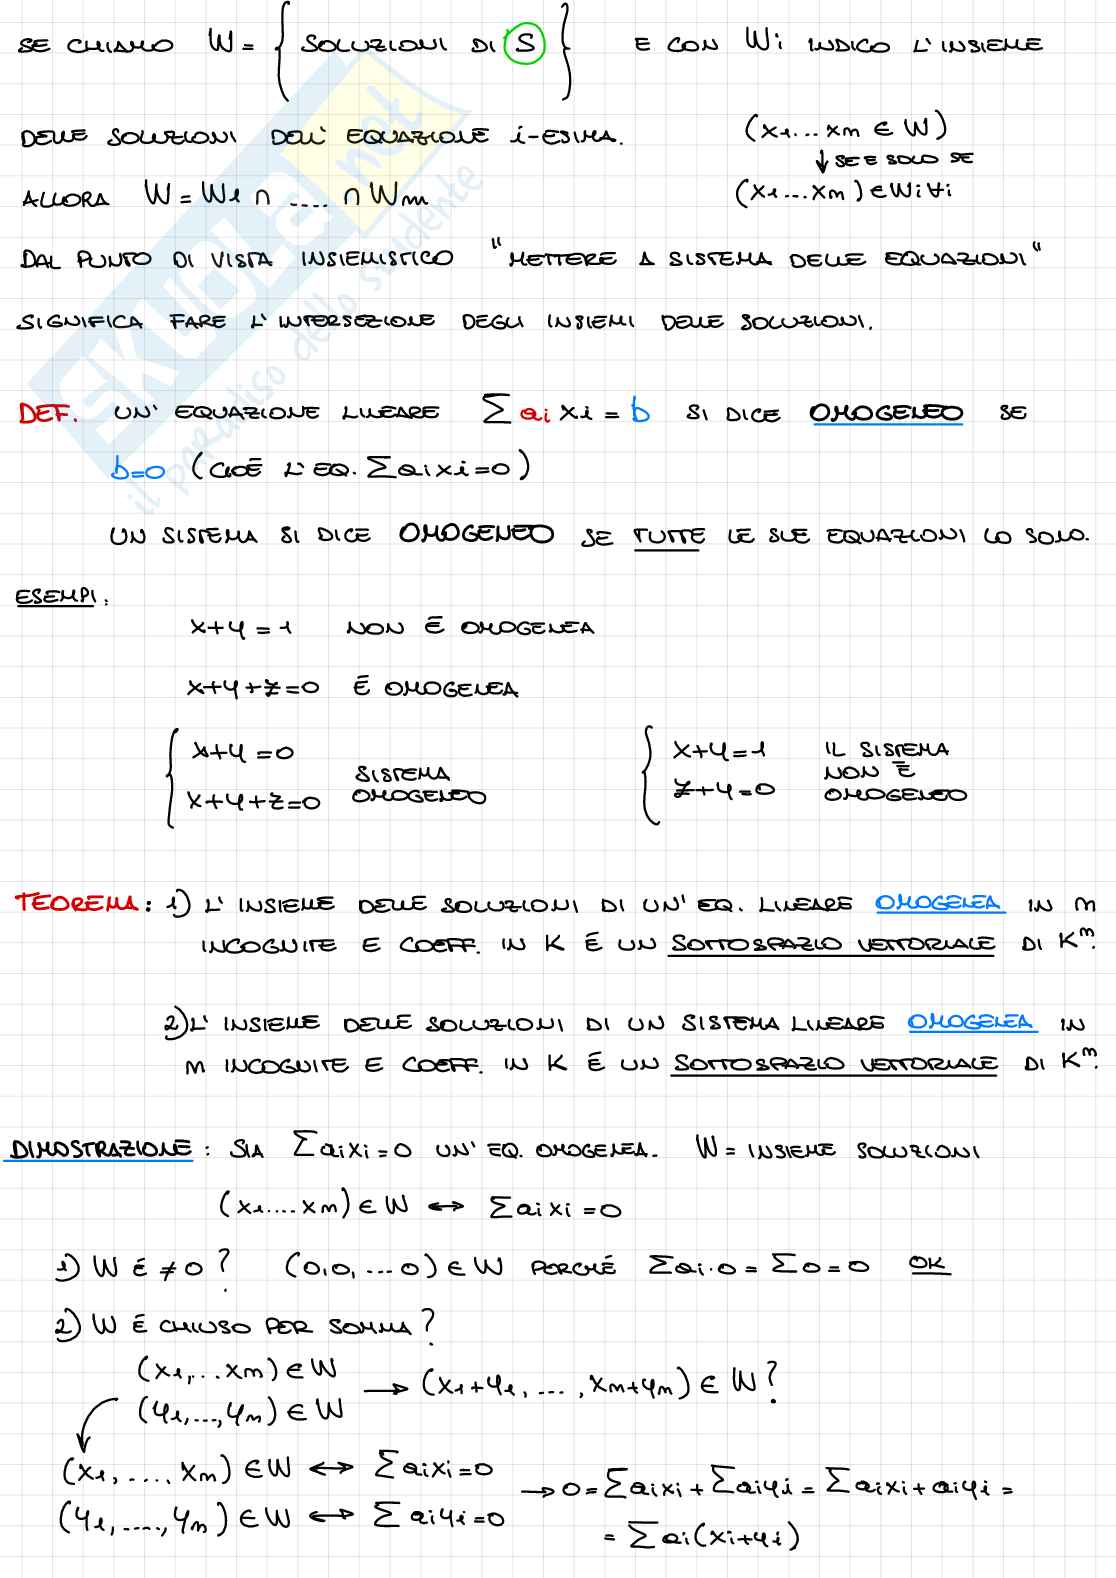 SE CHIAMO W = { SOLUZIONI DI S } E CON Wi INDICO L'INSIEME
DELLE SOLUZIONI DELL' EQUAZIONE i-ESIMA.
(x1...xn ∈ W)
↓ SE E SOLO SE
(x1...xn) ∈ Wi ∀i
ALLORA W = W1 ∩ .... ∩ Wm
DAL PUNTO DI VISTA INSIEMISTICO "METTERE A SISTEMA DELLE EQUAZIONI"
SIGNIFICA FARE L'INTERSEZIONE DEGLI INSIEMI DELLE SOLUZIONI.
DEF. UN' EQUAZIONE LINEARE Σ ai xi = b SI DICE OMOGENEO SE
b=0 (CIOÈ L'EQ. Σ ai xi = 0)
UN SISTEMA SI DICE OMOGENEO SE TUTTE LE SUE EQUAZIONI LO SONO.
ESEMPI:
x+y = 1 NON È OMOGENEA
x+y+z=0 È OMOGENEA
{ x+y=0
x+y+z=0 SISTEMA OMOGENEO
{ x+y=1
z+y=0 IL SISTEMA NON È OMOGENEO
TEOREMA: 1) L'INSIEME DELLE SOLUZIONI DI UN'EQ. LINEARE OMOGENEA IN n
INCOGNITE E COEFF. IN K È UN SOTTOSPAZIO VETTORIALE DI Kⁿ.
2) L'INSIEME DELLE SOLUZIONI DI UN SISTEMA LINEARE OMOGENEA IN
n INCOGNITE E COEFF. IN K È UN SOTTOSPAZIO VETTORIALE DI Kⁿ.
DIMOSTRAZIONE: SIA Σ ai xi = 0 UN'EQ. OMOGENEA. W = INSIEME SOLUZIONI
(x1....xn) ∈ W ↔ Σ ai xi = 0
1) W È ≠ 0? (0,0,...0) ∈ W PERCHÉ Σ ai·0 = Σ 0 = 0 OK
2) W È CHIUSO PER SOMMA?
(x1,...xn) ∈ W
(y1,...,yn) ∈ W → (x1+y1,...,xn+yn) ∈ W?
(x1,....,xn) ∈ W ↔ Σ ai xi = 0
(y1,....,yn) ∈ W ↔ Σ ai yi = 0
→ 0 = Σ ai xi + Σ ai yi = Σ ai xi + ai yi =
= Σ ai (xi+yi)
SKUOLA.net
il paradiso dello studente